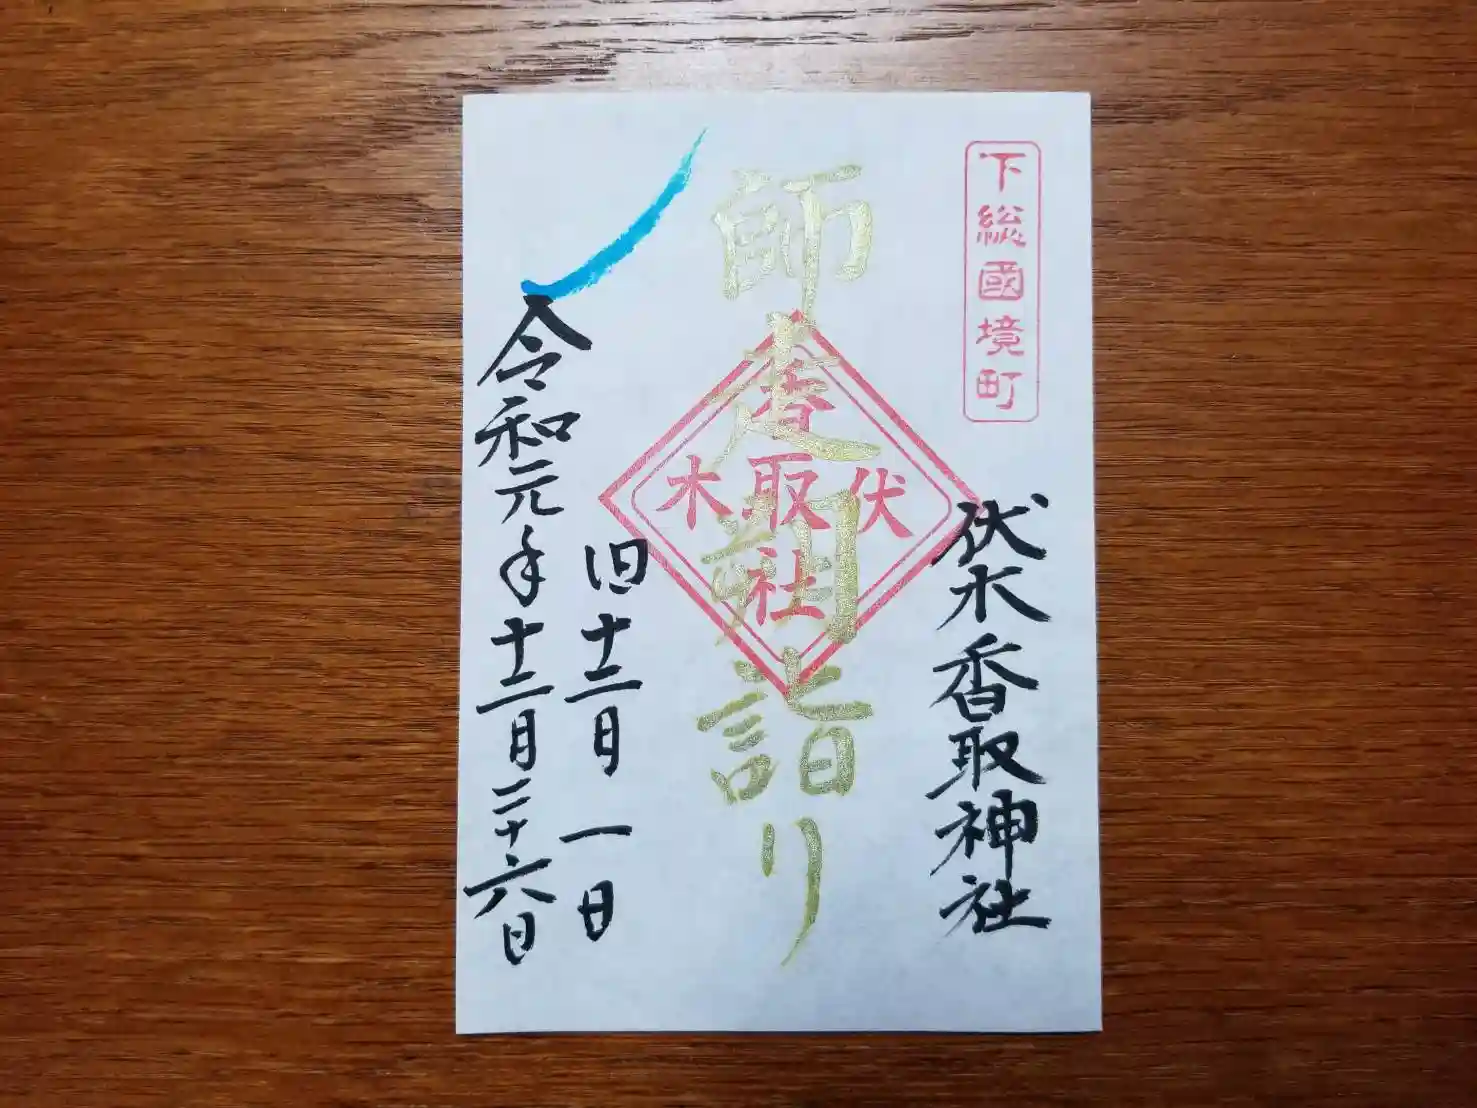 下総國境町
伏木香取神社
師走朔詣り
香
伏取木
社
旧十二月一日
令和元年十二月二十六日